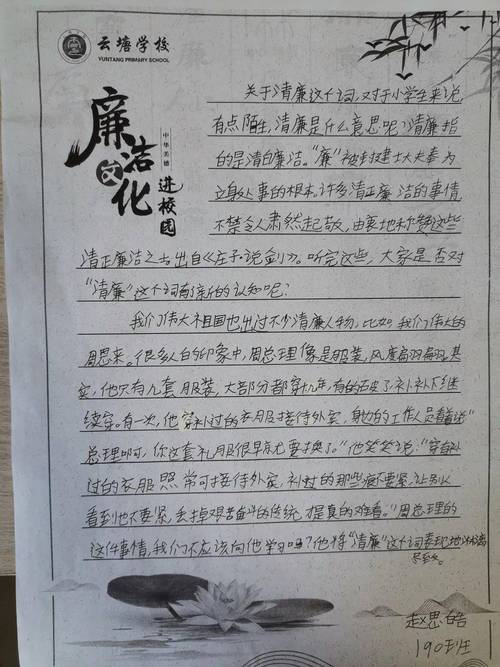 云塘学校
YUNTANG PRIMARY SCHOOL
廉洁文化
中华美德
进校园
关于清廉这个词,对于小学生来说
有点陌生,清廉是什么意思呢?清廉指
的是清白廉洁。“廉”被封建士大夫奉为
立身处事的根本。许多清正廉洁的事情
不禁令人肃然起敬,由衷地称赞这些
清正廉洁之士出自《庄子·说剑》。听完这些,大家是否对
“清廉”这个词有了新的认知呢?
我们伟大祖国也出过不少清廉人物,比如我们伟大的
周恩来。很多人的印象中,周总理像是服装,风度翩翩,其
实,他只有几套服装,大部分都穿十几年,有的破了补补下继
续穿。有一次,他穿补过的衣服接待外宾,身边的工作人员着说“
总理啊,你这套礼服很早尤要换了。”他笑笑说:“穿补
过的衣服照常可接待外宾,补过的那些痕不要紧,让别人
看到也不要紧,丢掉艰苦奋斗的传统,才是真的难看。”周总理的
这件事情,我们不应该向他学习吗?他将“清廉”这个词表地
尽致。
赵思皓
190班